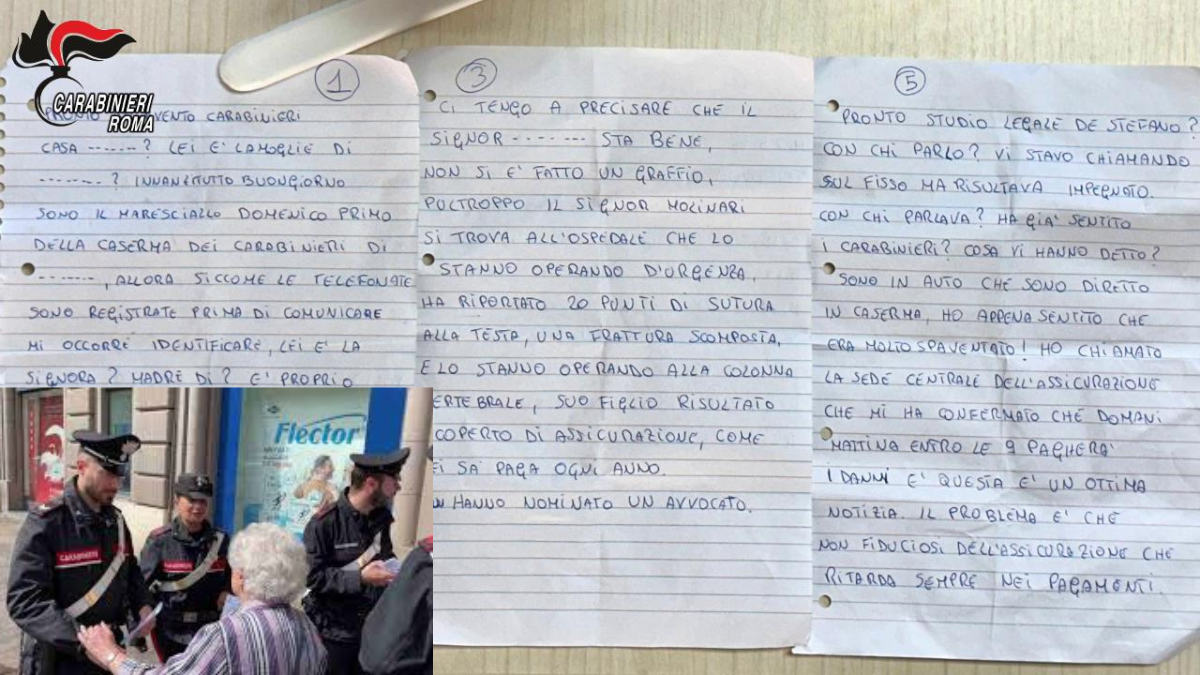 CARABINIERI
ROMA
1
PRONTO VENTO CARABINIERI
CASA -------? LEI E' LA MOGLIE DI
--------? INNANZITUTTO BUONGIORNO
SONO IL MARESCIALLO DOMENICO PRIMO
DELLA CASERMA DEI CARABINIERI DI
-------, ALLORA SICCOME LE TELEFONATE
SONO REGISTRATE PRIMA DI COMUNICARE
MI OCCORRE IDENTIFICARE, LEI E' LA
SIGNORA? MADRE DI? E' PROPRIO
3
CI TENGO A PRECISARE CHE IL
SIGNOR ------- STA BENE,
NON SI E' FATTO UN GRAFFIO,
POLTROPPO IL SIGNOR MOLINARI
SI TROVA ALL'OSPEDALE CHE LO
STANNO OPERANDO D'URGENZA,
HA RIPORTATO 20 PUNTI DI SUTURA
ALLA TESTA, UNA FRATTURA SCOMPOSTA,
E LO STANNO OPERANDO ALLA COLONNA
ERTEBRALE, SUO FIGLIO RISULTATO
COPERTO DI ASSICURAZIONE, COME
EI SA' PAGA OGNI ANNO.
HANNO NOMINATO UN AVVOCATO.
5
PRONTO STUDIO LEGALE DE STEFANO?
CON CHI PARLO? VI STAVO CHIAMANDO
SUL FISSO MA RISULTAVA IMPEGNATO.
CON CHI PARLAVA? HA GIA' SENTITO
I CARABINIERI? COSA VI HANNO DETTO?
SONO IN AUTO CHE SONO DIRETTO
IN CASERMA, HO APPENA SENTITO CHE
ERA MOLTO SPAVENTATO! HO CHIAMATO
LA SEDE CENTRALE DELL'ASSICURAZIONE
CHE MI HA CONFERMATO CHE DOMANI
MATTINA ENTRO LE 9 PAGHERA'
I DANNI E' QUESTA E' UN OTTIMA
NOTIZIA. IL PROBLEMA E' CHE
NON FIDUCIOSI DELL'ASSICURAZIONE CHE
RITARDA SEMPRE NEI PAGAMENTI.
Flector
CARABINIERI
CARABINIERI